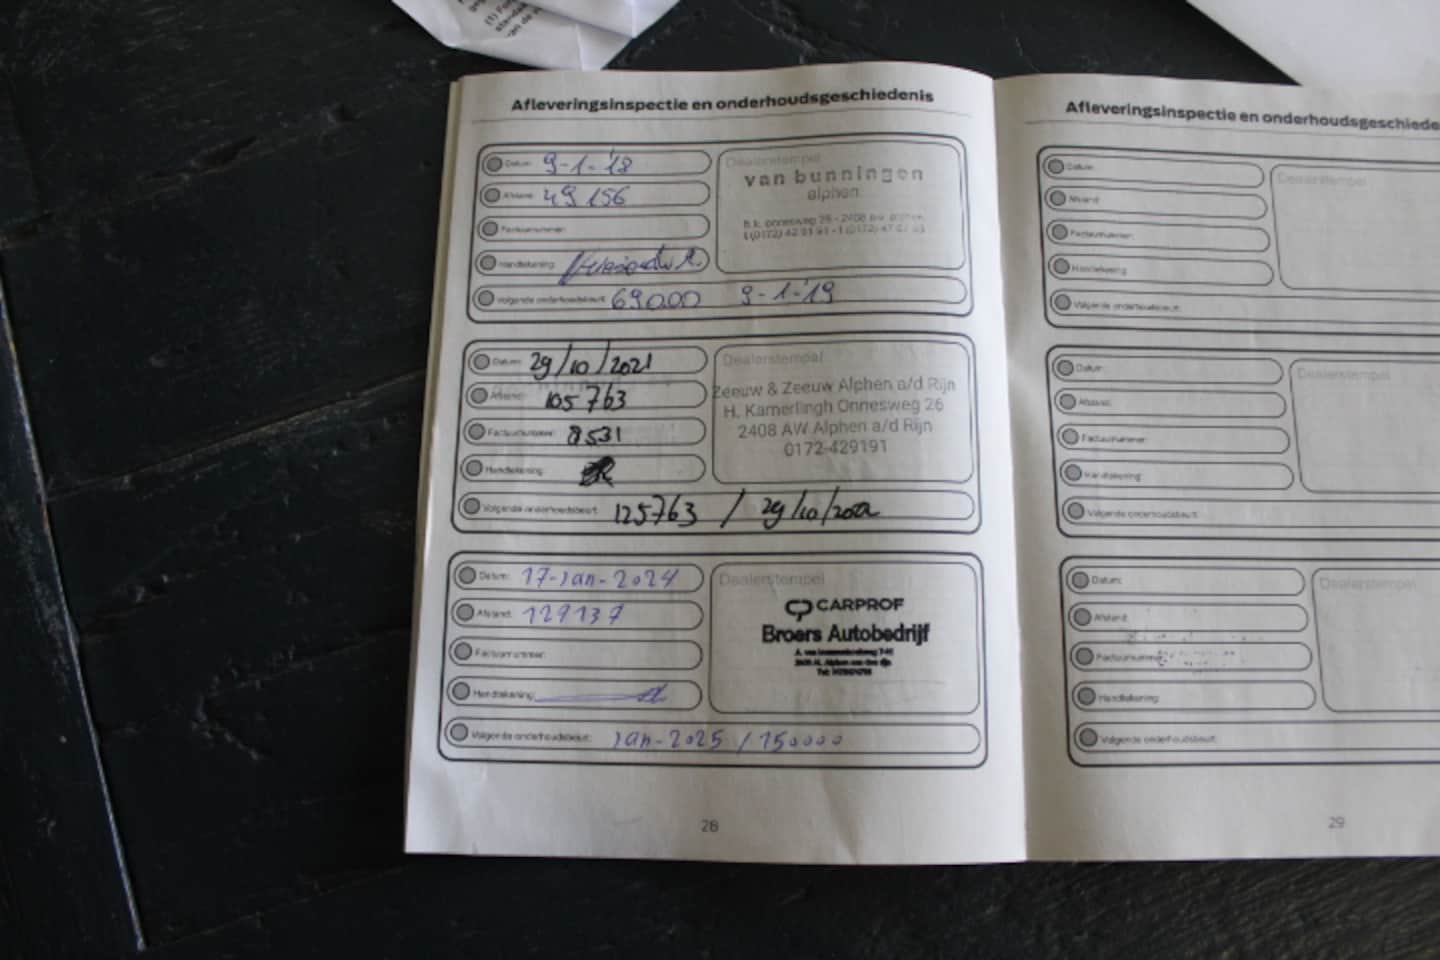 (1) Fo
standaa
van de
Afleveringsinspectie en onderhoudsgeschiedenis
Datum: 9-1-'18
Afstand: 49 156
Factuurnummer:
Handtekening:
Volgende onderhoudsbeurt: 69000 9-1-'19
Dealerstempel
van bunningen
alphen
Datum: 29/10/2021
Afstand: 105763
Factuurnummer: 8531
Handtekening:
Volgende onderhoudsbeurt: 125763 / 29/10/2022
Dealerstempel
Zeeuw & Zeeuw Alphen a/d Rijn
H. Kamerlingh Onnesweg 26
2408 AW Alphen a/d Rijn
0172-429191
Datum: 17-Jan-2024
Afstand: 129137
Factuurnummer:
Handtekening:
Volgende onderhoudsbeurt: Jan-2025 / 150000
Dealerstempel
CARPROF
Broers Autobedrijf
28
Afleveringsinspectie en onderhoudsgeschiede
Datum:
Afstand:
Factuurnummer:
Handtekening:
Volgende onderhoudsbeurt:
Dealerstempel
Datum:
Afstand:
Factuurnummer:
Handtekening:
Volgende onderhoudsbeurt:
Dealerstempel
Datum:
Afstand:
Factuurnummer:
Handtekening:
Volgende onderhoudsbeurt:
Dealerstempel
29